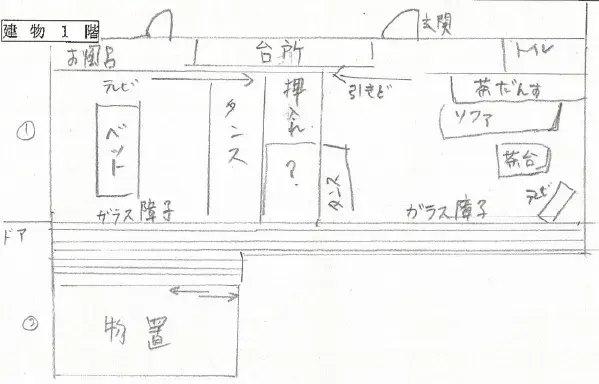 建物1階
玄関
お風呂
台所
トイレ
テレビ
引きど
茶だんす
ソファ
①
ベット
タンス
押入れ
?
タンス
茶台
テレビ
ガラス障子
ガラス障子
ドア
物置